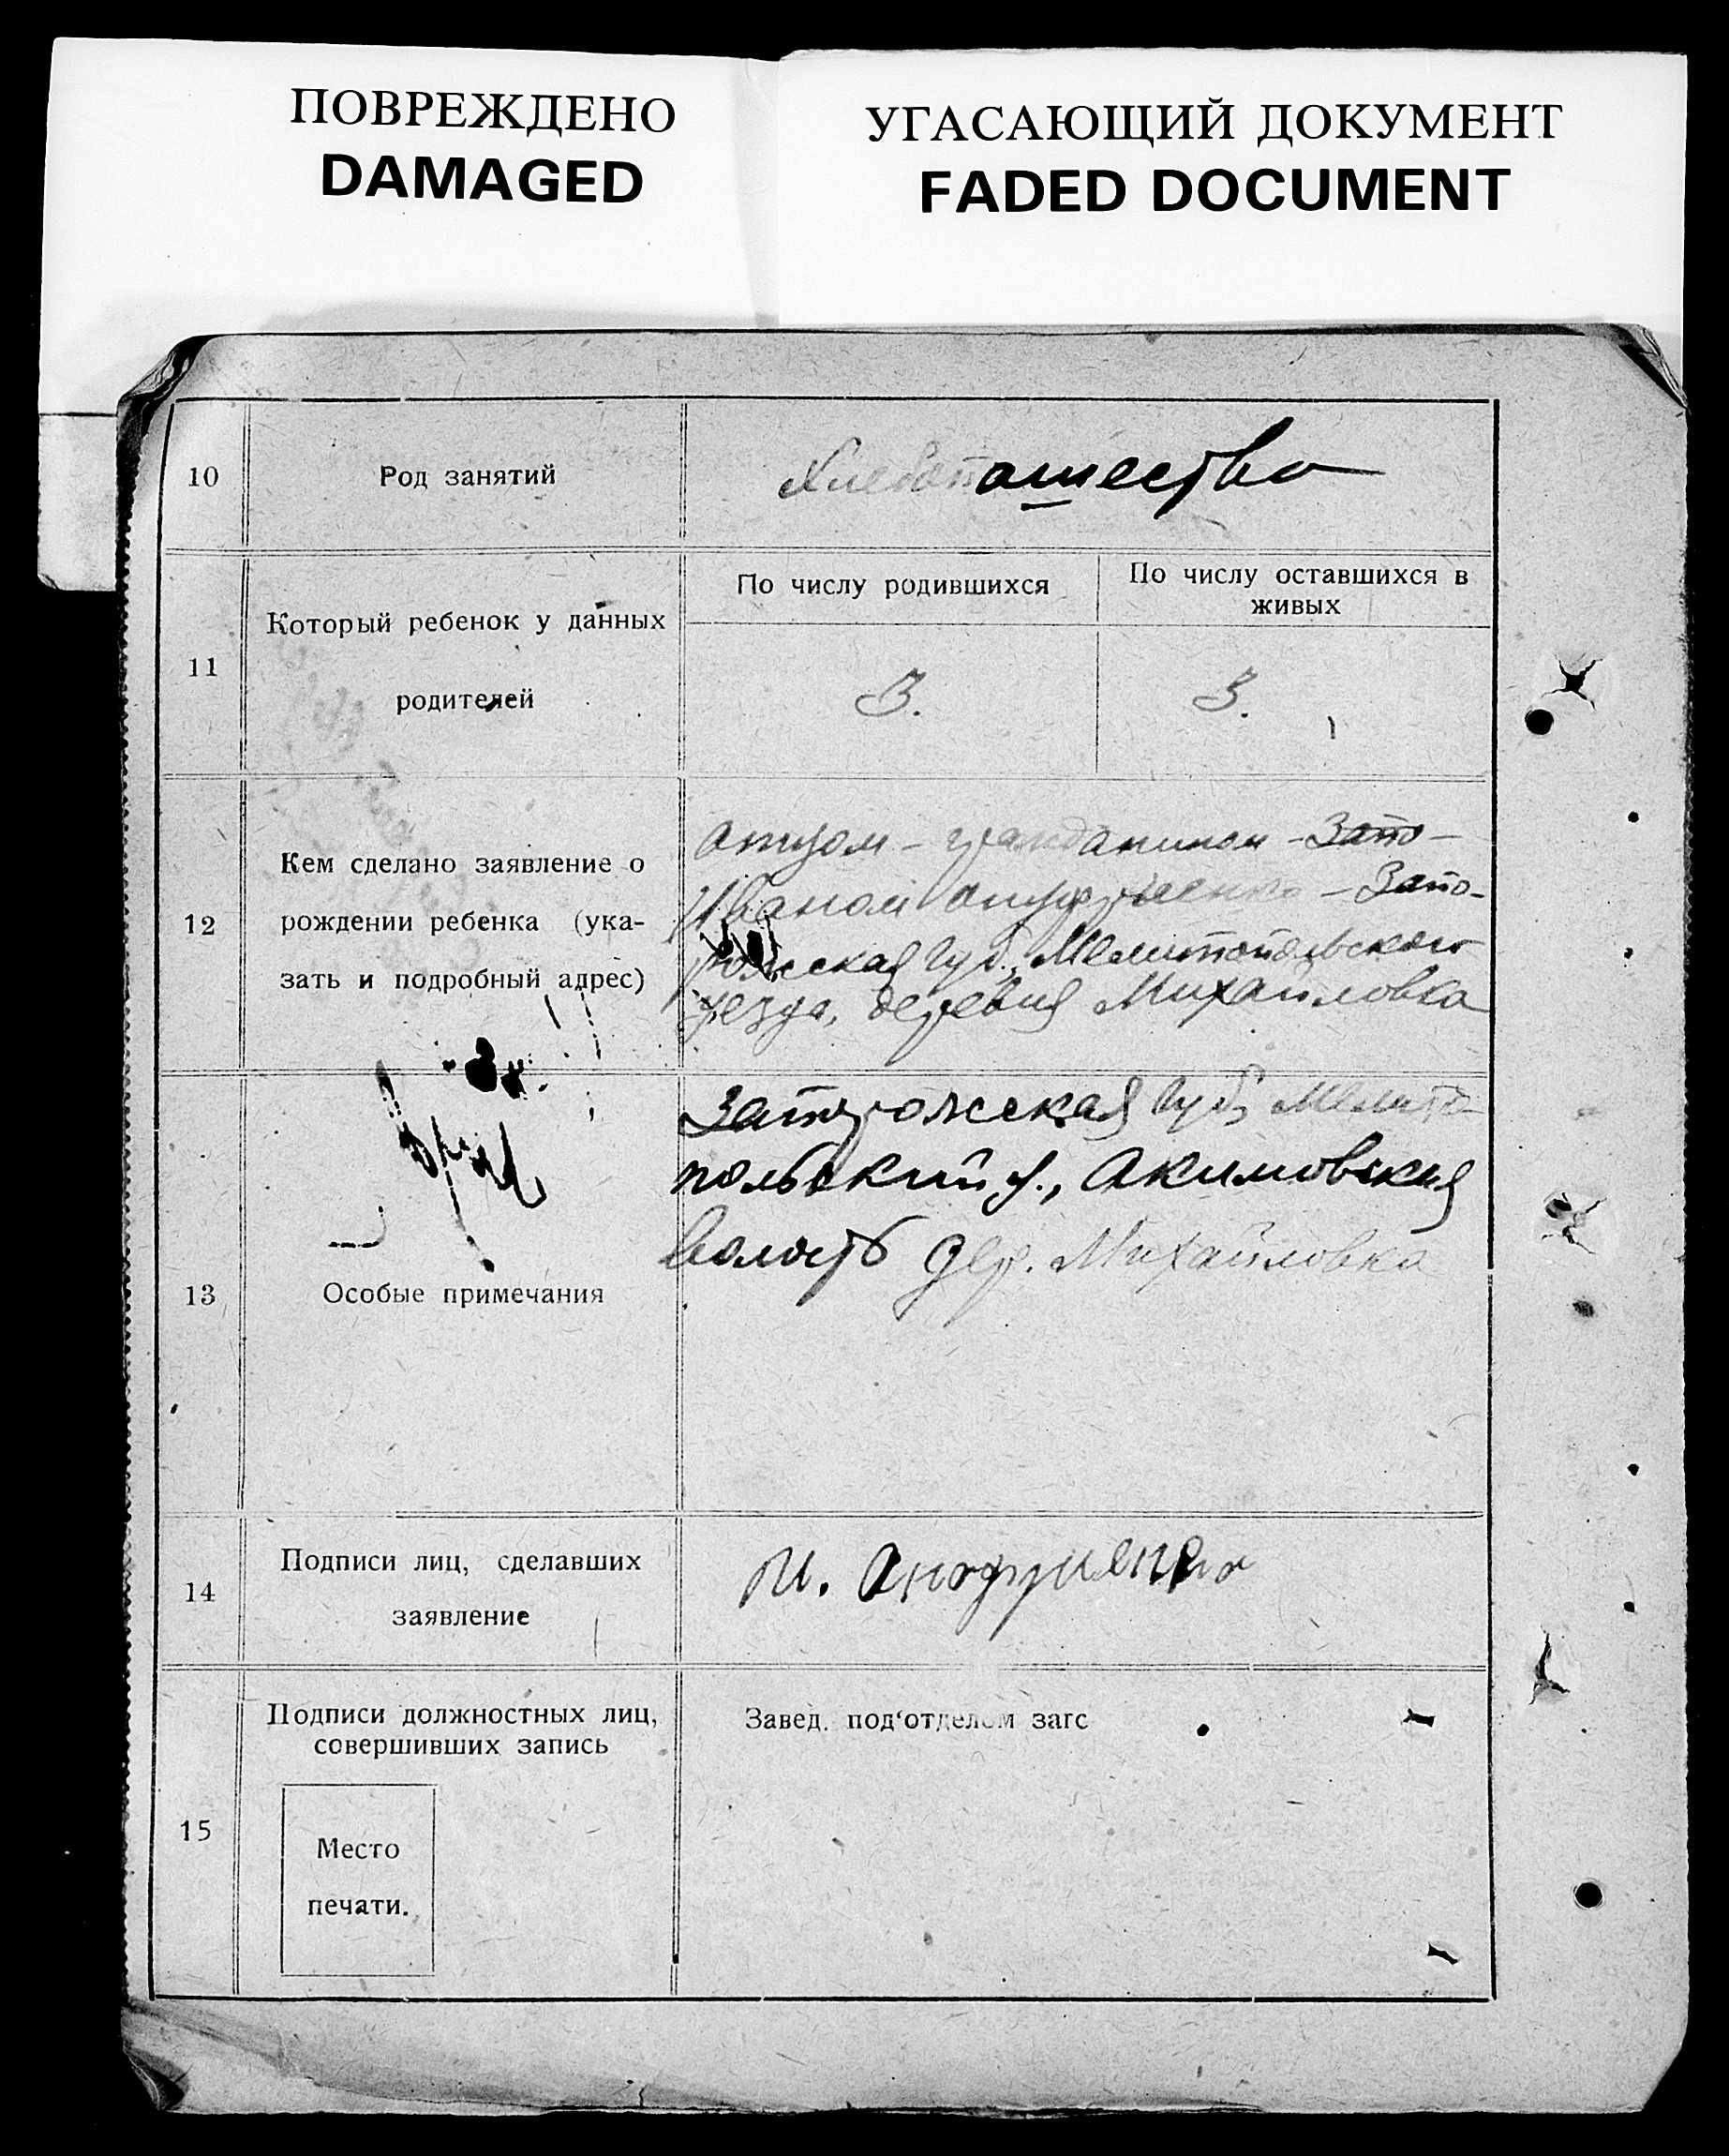 ПОВРЕЖДЕНО
DAMAGED
УГАСАЮЩИЙ ДОКУМЕНТ
FADED DOCUMENT
10
Род занятий
Хлебопашество
11
Который ребенок у данных
родителей
По числу родившихся
По числу оставшихся в
живых
3.
3.
12
Кем сделано заявление о
рождении ребенка (ука-
зать и подробный адрес)
отцом - гражданином - Запо-
Иваном - Запо-
рожская Губ., Мелитопольского
уезда, деревня Михайловка
13
Особые примечания
Запорожская Губ, Мелито-
польский у., Акимовская
волость дер. Михайловка
14
Подписи лиц, сделавших
заявление
И.
15
Подписи должностных лиц,
совершивших запись
Место
печати.
Завед. под'отделом загс